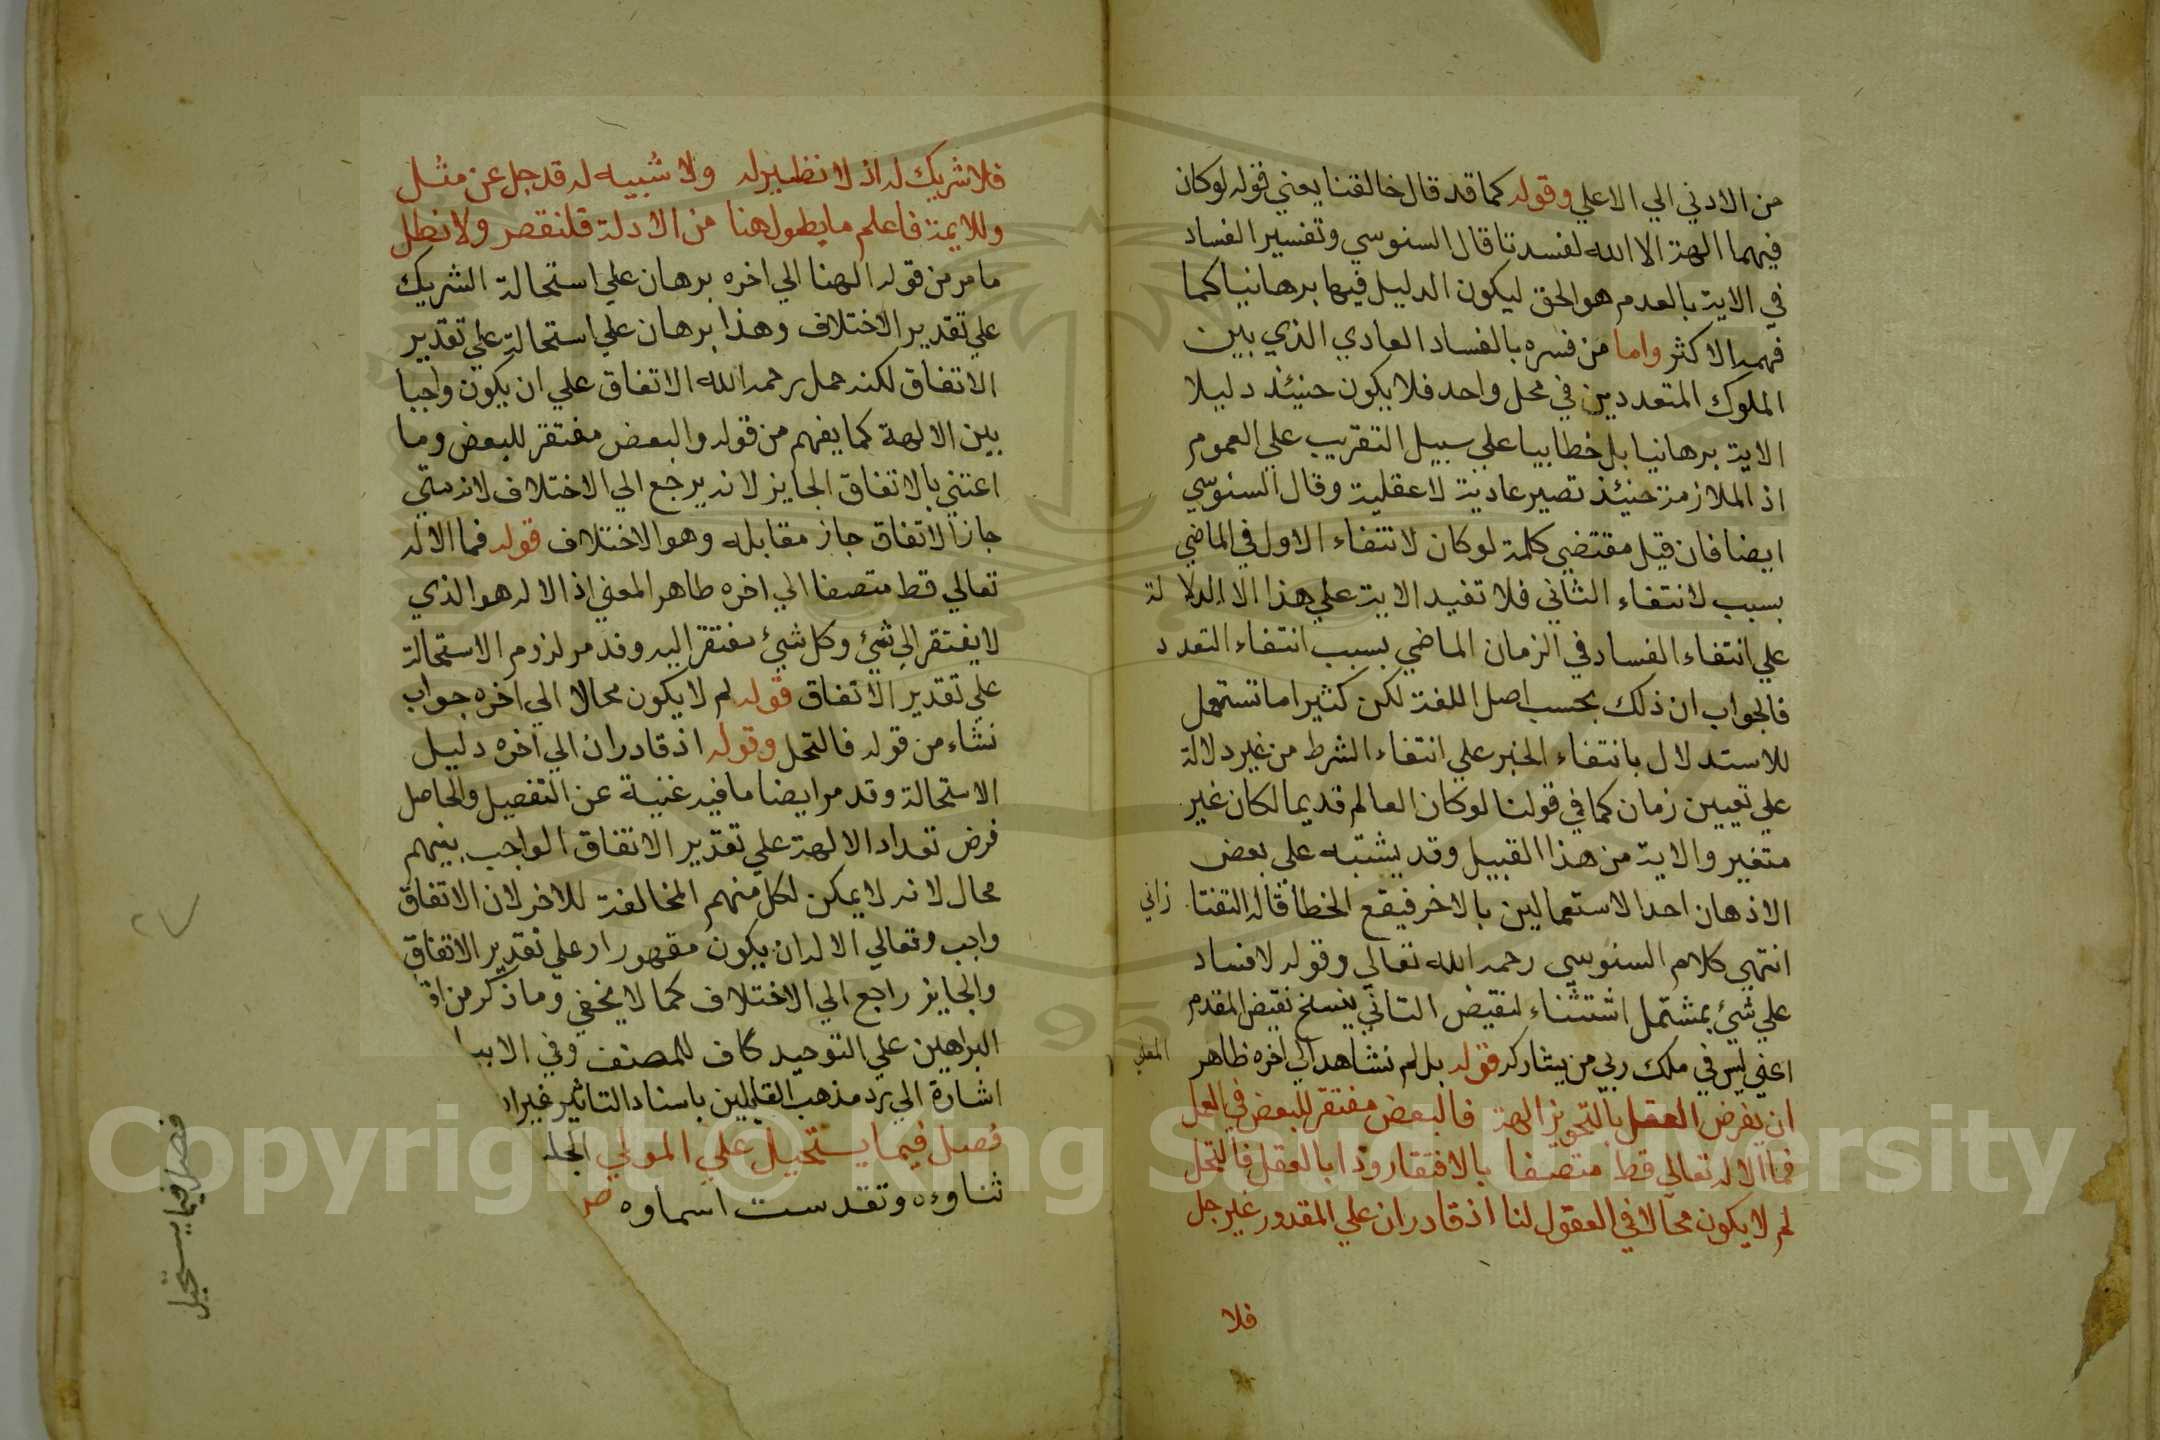 من الادني الي الاعلي وقوله كما قد قال خالقنا يعني قوله لو كان
فيهما الهة الا الله لفسدتا قال السنوسي وتفسير الفساد
في الاية بالعدم هو الحق ليكون الدليل فيها برهانيا كما
فهمه الاكثر واما من فسره بالفساد العادي الذي بين
الملوك المتعددين في محل واحد فلا يكون حنيئذ دليلا
الاية برهانيا بل خطابيا علي سبيل التقريب علي العموم
اذ الملازمة حنيئذ تصير عادية لا عقلية وقال السنوسي
ايضا فان قيل مقتضي كلمة لو كان لانتفاء الاول في الماضي
بسبب لانتفاء الثاني فلا تفيد الاية علي هذا الا الدلا لة
علي انتفاء الفساد في الزمان الماضي بسبب انتفاء التعدد
فالجواب ان ذلك بحسب اصل اللغة لكن كثيرا ما تستعمل
للاستدلال بانتفاء الخبر علي انتفاء الشرط من غير دلالة
علي تعيين زمان كما في قولنا لو كان العالم قديما لكان غير
متغير والاية من هذا القبيل وقد يشتبه علي بعض
الاذهان احدا لاستعمالين بالاخر فيقع الخطا قاله التفتا زاني
انتهي كلام السنوسي رحمه الله تعالي وقوله لا فساد
علي شيء بمشتمل اشتثناء لنقيض التاني ينسلخ نقيض المقدم
اعني ليس في ملك ربي من يشاركه قوله بل لم نشاهد الي اخره ظاهر المعني
ان يفرض العقل بالتجويز الهة فالبعض مفتقر للبعض في العمل
فما الاله تعالي قط متصفا بالافتقار وذا بالعقل فالتحل
لم لا يكون محالا في العقول لنا اذ قادران علي المقدور غير جل
فلا
فلا شريك له اذ لا نظير له ولا شبيه له قد جل عن مثل
وللايمة فاعلم ما يطول هنا من الادلة فلنقصر ولا نطل
ما مر من قوله الهنا الي اخره برهان علي استحالة الشريك
علي تقدير الاختلاف وهذا برهان علي استحالة علي تقدير
الاتفاق لكنه حمل رحمه الله الاتفاق علي ان يكون واجبا
بين الالهة كما يفهم من قوله والبعض مفتقر للبعض وما
اعتني بالاتفاق الجايز لانه يرجع الي الاختلاف لانه متي
جاز الاتفاق جاز مقابله وهو الاختلاف قوله فما الاله
تعالي قط متصفا الي اخره طاهر المعني اذ الاله هو الذي
لا يفتقر الي شيء وكل شيء مفتقر اليه وقد مر لزوم الاستحالة
علي تقدير الاتفاق قوله لم لا يكون محالا الي اخره جواب
نشاء من قوله فالتحل وقوله اذ قادران الي اخره دليل
الاستحالة وقد مر ايضا ما فيه غنية عن التفصيل والحاصل
فرض تعداد الالهة علي تقدير الاتفاق الواجب بينهم
محال لانه لا يمكن لكل منهم المخالفة للاخر لان الاتفاق
واجب وتعالي الاله ان يكون مقهورا وعلي تقدير الاتفاق
والجايز راجع الي الاختلاف كما لا يخفي وما ذكر من
البراهين علي التوحيد كاف للمصنف وفي الابيا
اشارة الي رد مذهب القايلين باسناد التاثير غير ا
فصل فيما يستحيل علي المولي الجل
ثناوءه وتقدست اسماوه ص
فصل فيما يستحيل
Copyright © King Saud University